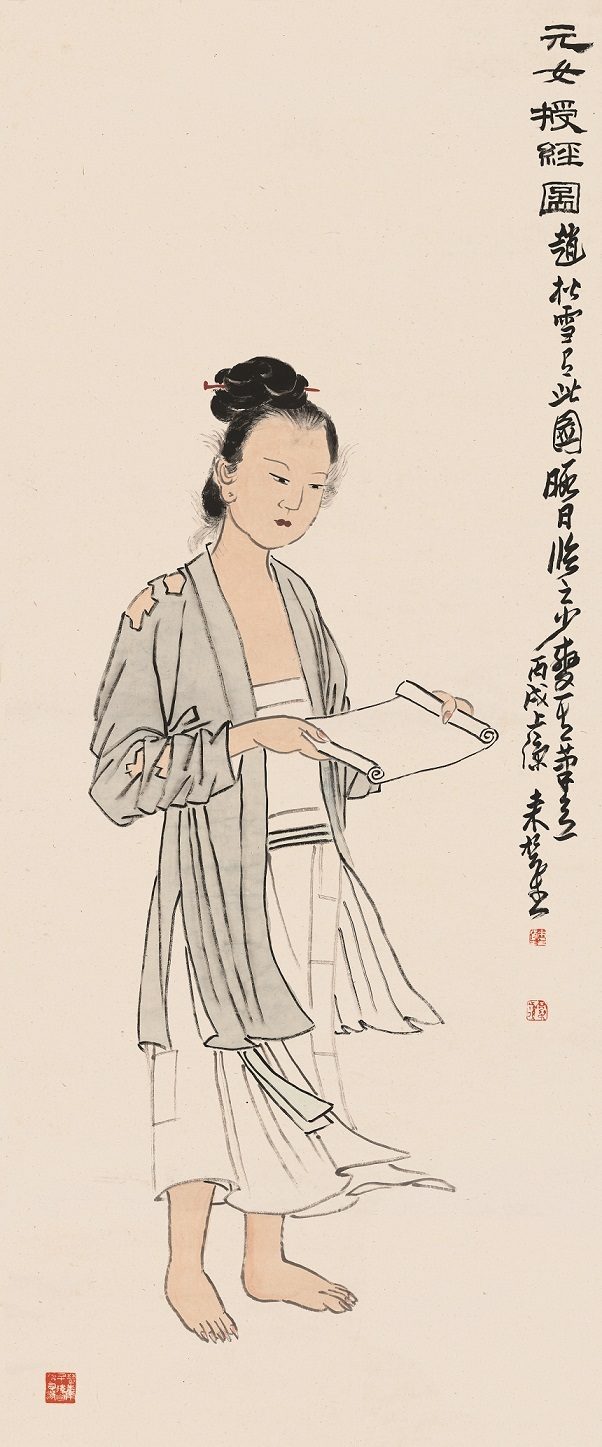 元女授經圖趙松雪有此圖暇日臨之少變筆意
丙戌上來楚生